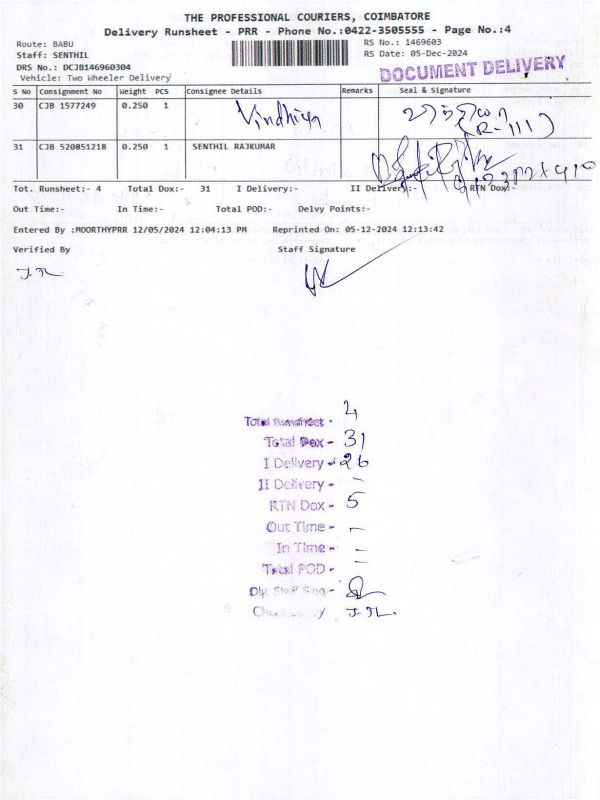 THE PROFESSIONAL COURIERS, COIMBATORE
Delivery Runsheet - PRR - Phone No.:0422-3505555 - Page No.:4
Route: BABU RS No.: 1469603
Staff: SENTHIL RS Date: 05-Dec-2024
DRS No.: DCJB146960304
Vehicle: Two Wheeler Delivery
DOCUMENT DELIVERY
S No Consignment No Weight PCS Consignee Details Remarks Seal & Signature
30 CJB 1577249 0.250 1 Vindhiya
(R-111)
31 CJB 520851218 0.250 1 SENTHIL RAJKUMAR
Tot. Runsheet:- 4 Total Dox:- 31 I Delivery:- II Delivery:- RTN Dox:-
Out Time:- In Time:- Total POD:- Delvy Points:-
Entered By :MOORTHYPRR 12/05/2024 12:04:13 PM Reprinted On: 05-12-2024 12:13:42
Verified By Staff Signature
Total Runsheet - 4
Total Dox - 31
I Delivery - 26
II Delivery - -
RTN Dox - 5
Out Time - -
In Time - -
Total POD - -
Dly. Staff Sing -